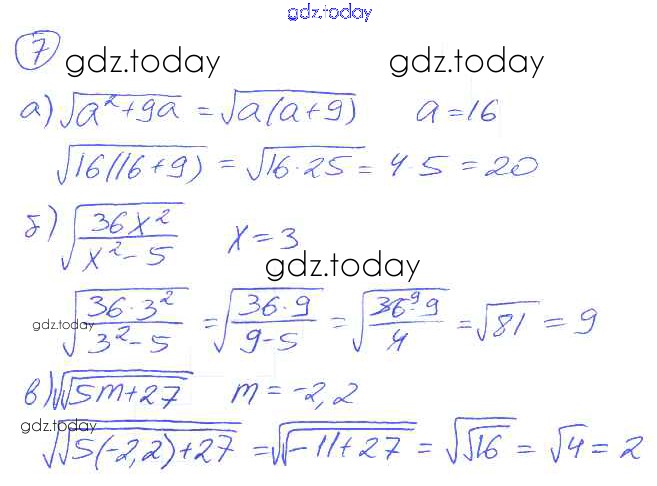 gdz.today
7
gdz.today gdz.today
а) √(a² + 9a) = √(a(a+9)) a = 16
√(16(16+9)) = √(16·25) = 4·5 = 20
б) √(36x²/(x² - 5)) x = 3
gdz.today
gdz.today √(36·3²/(3² - 5)) = √(36·9/(9 - 5)) = √(36⁹·9/4) = √81 = 9
в) √√(5m+27) m = -2,2
gdz.today
√√(5(-2,2)+27) = √√(-11+27) = √√16 = √4 = 2